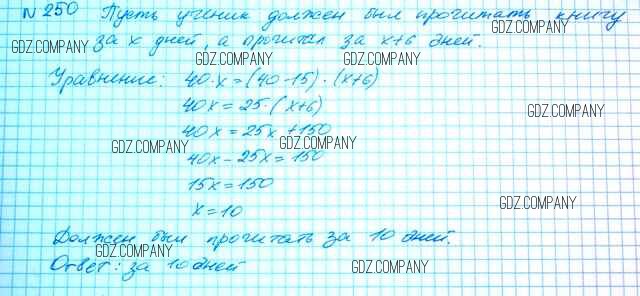 № 250 Пусть ученик должен был прочитать книгу
GDZ.COMPANY GDZ.COMPANY
за x дней, а прочитал за x+6 дней.
GDZ.COMPANY GDZ.COMPANY
Уравнение: 40·x = (40-15)·(x+6)
40x = 25·(x+6)
GDZ.COMPANY
40x = 25x + 150
GDZ.COMPANY GDZ.COMPANY
40x - 25x = 150
15x = 150
x = 10
GDZ.COMPANY
Должен был прочитать за 10 дней.
GDZ.COMPANY
Ответ: за 10 дней
GDZ.COMPANY